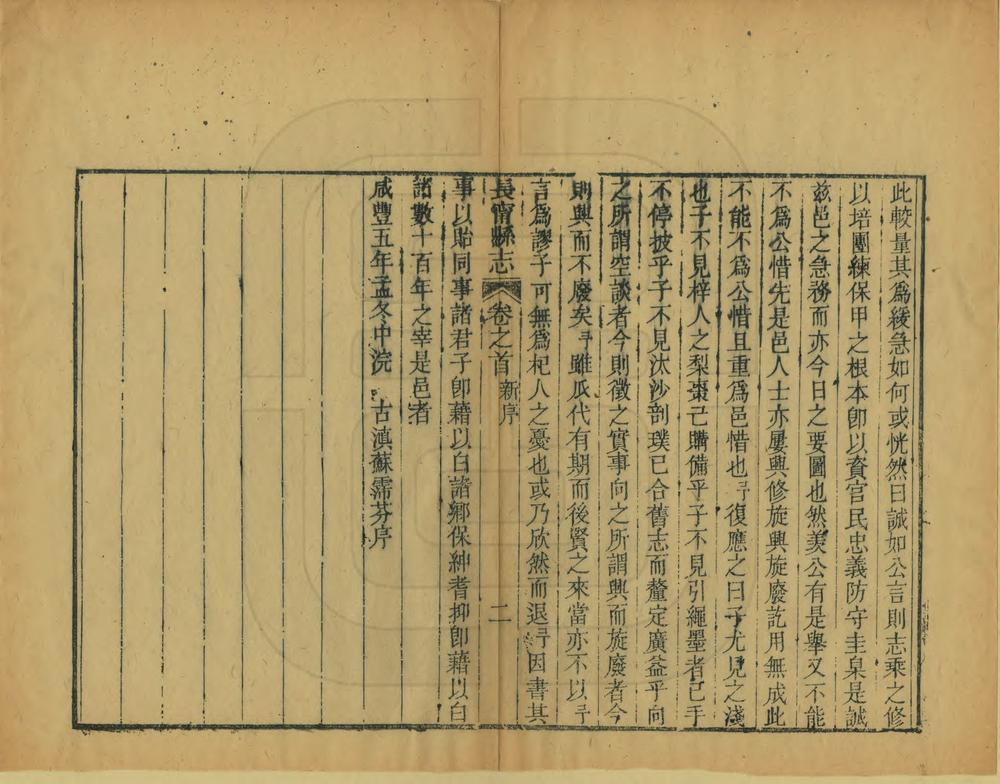 此較量其爲緩急如何或恍然曰誠如公言則志乘之修
以培團練保甲之根本卽以資官民忠義防守圭臬是誠
茲邑之急務而亦今日之要圖也然羨公有是舉又不能
不爲公惜先是邑人士亦屢興修旋興旋廢訖用無成此
不能不爲公惜且重爲邑惜也予復應之曰子尤見之淺
也子不見梓人之梨棗已購備乎子不見引繩墨者已手
不停披乎子不見汰沙剖璞已合舊志而釐定廣益乎向
之所謂空談者今則徵之實事向之所謂興而旋廢者今
則興而不廢矣予雖瓜代有期而後賢之來當亦不以予
言爲謬子可無爲杞人之憂也或乃欣然而退予因書其
長甯縣志 卷之首 新序 二
事以貽同事諸君子卽藉以白諸鄕保紳耆抑卽藉以白
諸數十百年之宰是邑者
咸豐五年孟冬中浣 古滇蘇霈芬序